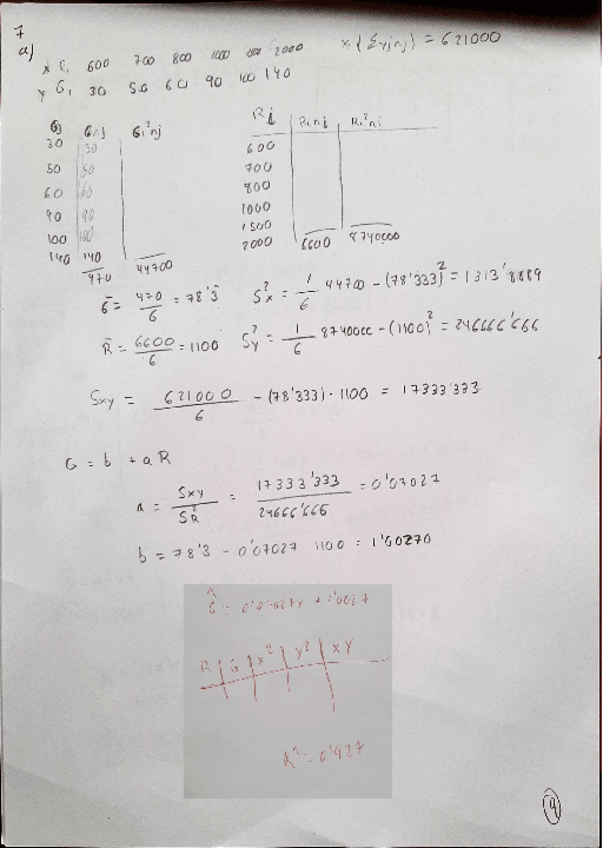 7
a)
x G, 600 700 800 1000 1500 2000 x, { Σyjnj} = 621000
y G, 30 50 60 90 100 140
Gj Gnj Gi²nj
30 30
50 50
60 60
90 90
100 100
140 140
470 44700
Ri Rini Ri²ni
600
700
800
1000
1500
2000 6600 8740000
G̅ = 470/6 = 78'3̅ S²x = 1/6 44700 - (78'333)² = 1313'8889
R̅ = 6600/6 = 1100 S²y = 1/6 8740000 - (1100)² = 246666'666
Sxy = 621000/6 - (78'333) · 1100 = 17333'333
G = b + a R
a = Sxy/S²R = 17333'333/24666'666 = 0'07027
b = 78'3 - 0'07027 1100 = 1'00270
R | G | x² | y² | xy
R² = 0'927
9